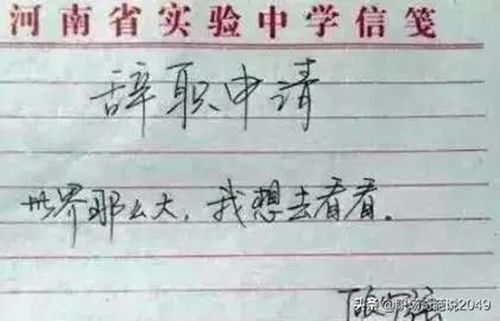 河南省实验中学信笺
辞职申请
世界那么大，我想去看看。
头条 @职场
说2049